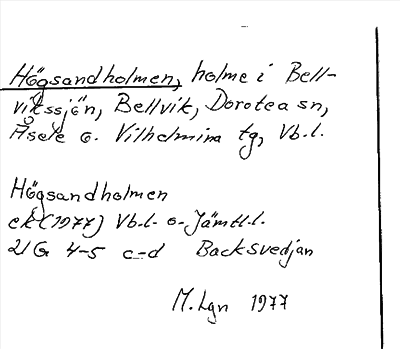 Högsandholmen, holme i Bell-
vikssjön, Bellvik, Dorotea sn,
Åsele o. Vilhelmina tg, Vb.l.
Högsandholmen
ek (1977) Vb.l. o. Jämtl.l.
21 G 4-5 c-d Backsvedjan
M. Lgn 1977